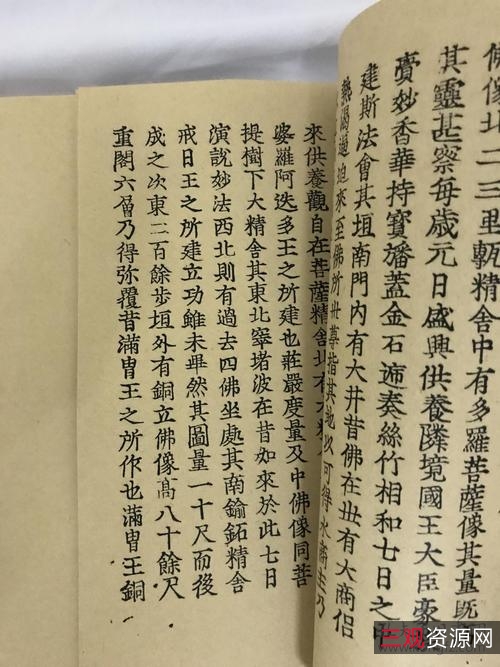 佛像北二三里甎精舍中有多羅菩薩像其量既
其靈甚察每歲元日盛興供養隣境國王大臣豪
賷妙香華持寶旛蓋金石遞奏絲竹相和七日之
建斯法會其垣南門內有大井昔佛在世有大商侶
熱渴逼迫來至佛所世尊指其地以可得水商主乃
來供養觀自在菩薩精舍北有大精
婆羅阿迭多王之所建也莊嚴度量及中佛像同菩
提樹下大精舍其東北窣堵波在昔如來於此七日
演說妙法西北則有過去四佛坐處其南鍮鉐精舍
戒日王之所建立功雖未畢然其圖量一十尺而後
成之次東二百餘步垣外有銅立佛像髙八十餘尺
重閣六層乃得弥覆昔滿胄王之所作也滿胄王銅
三观资源网